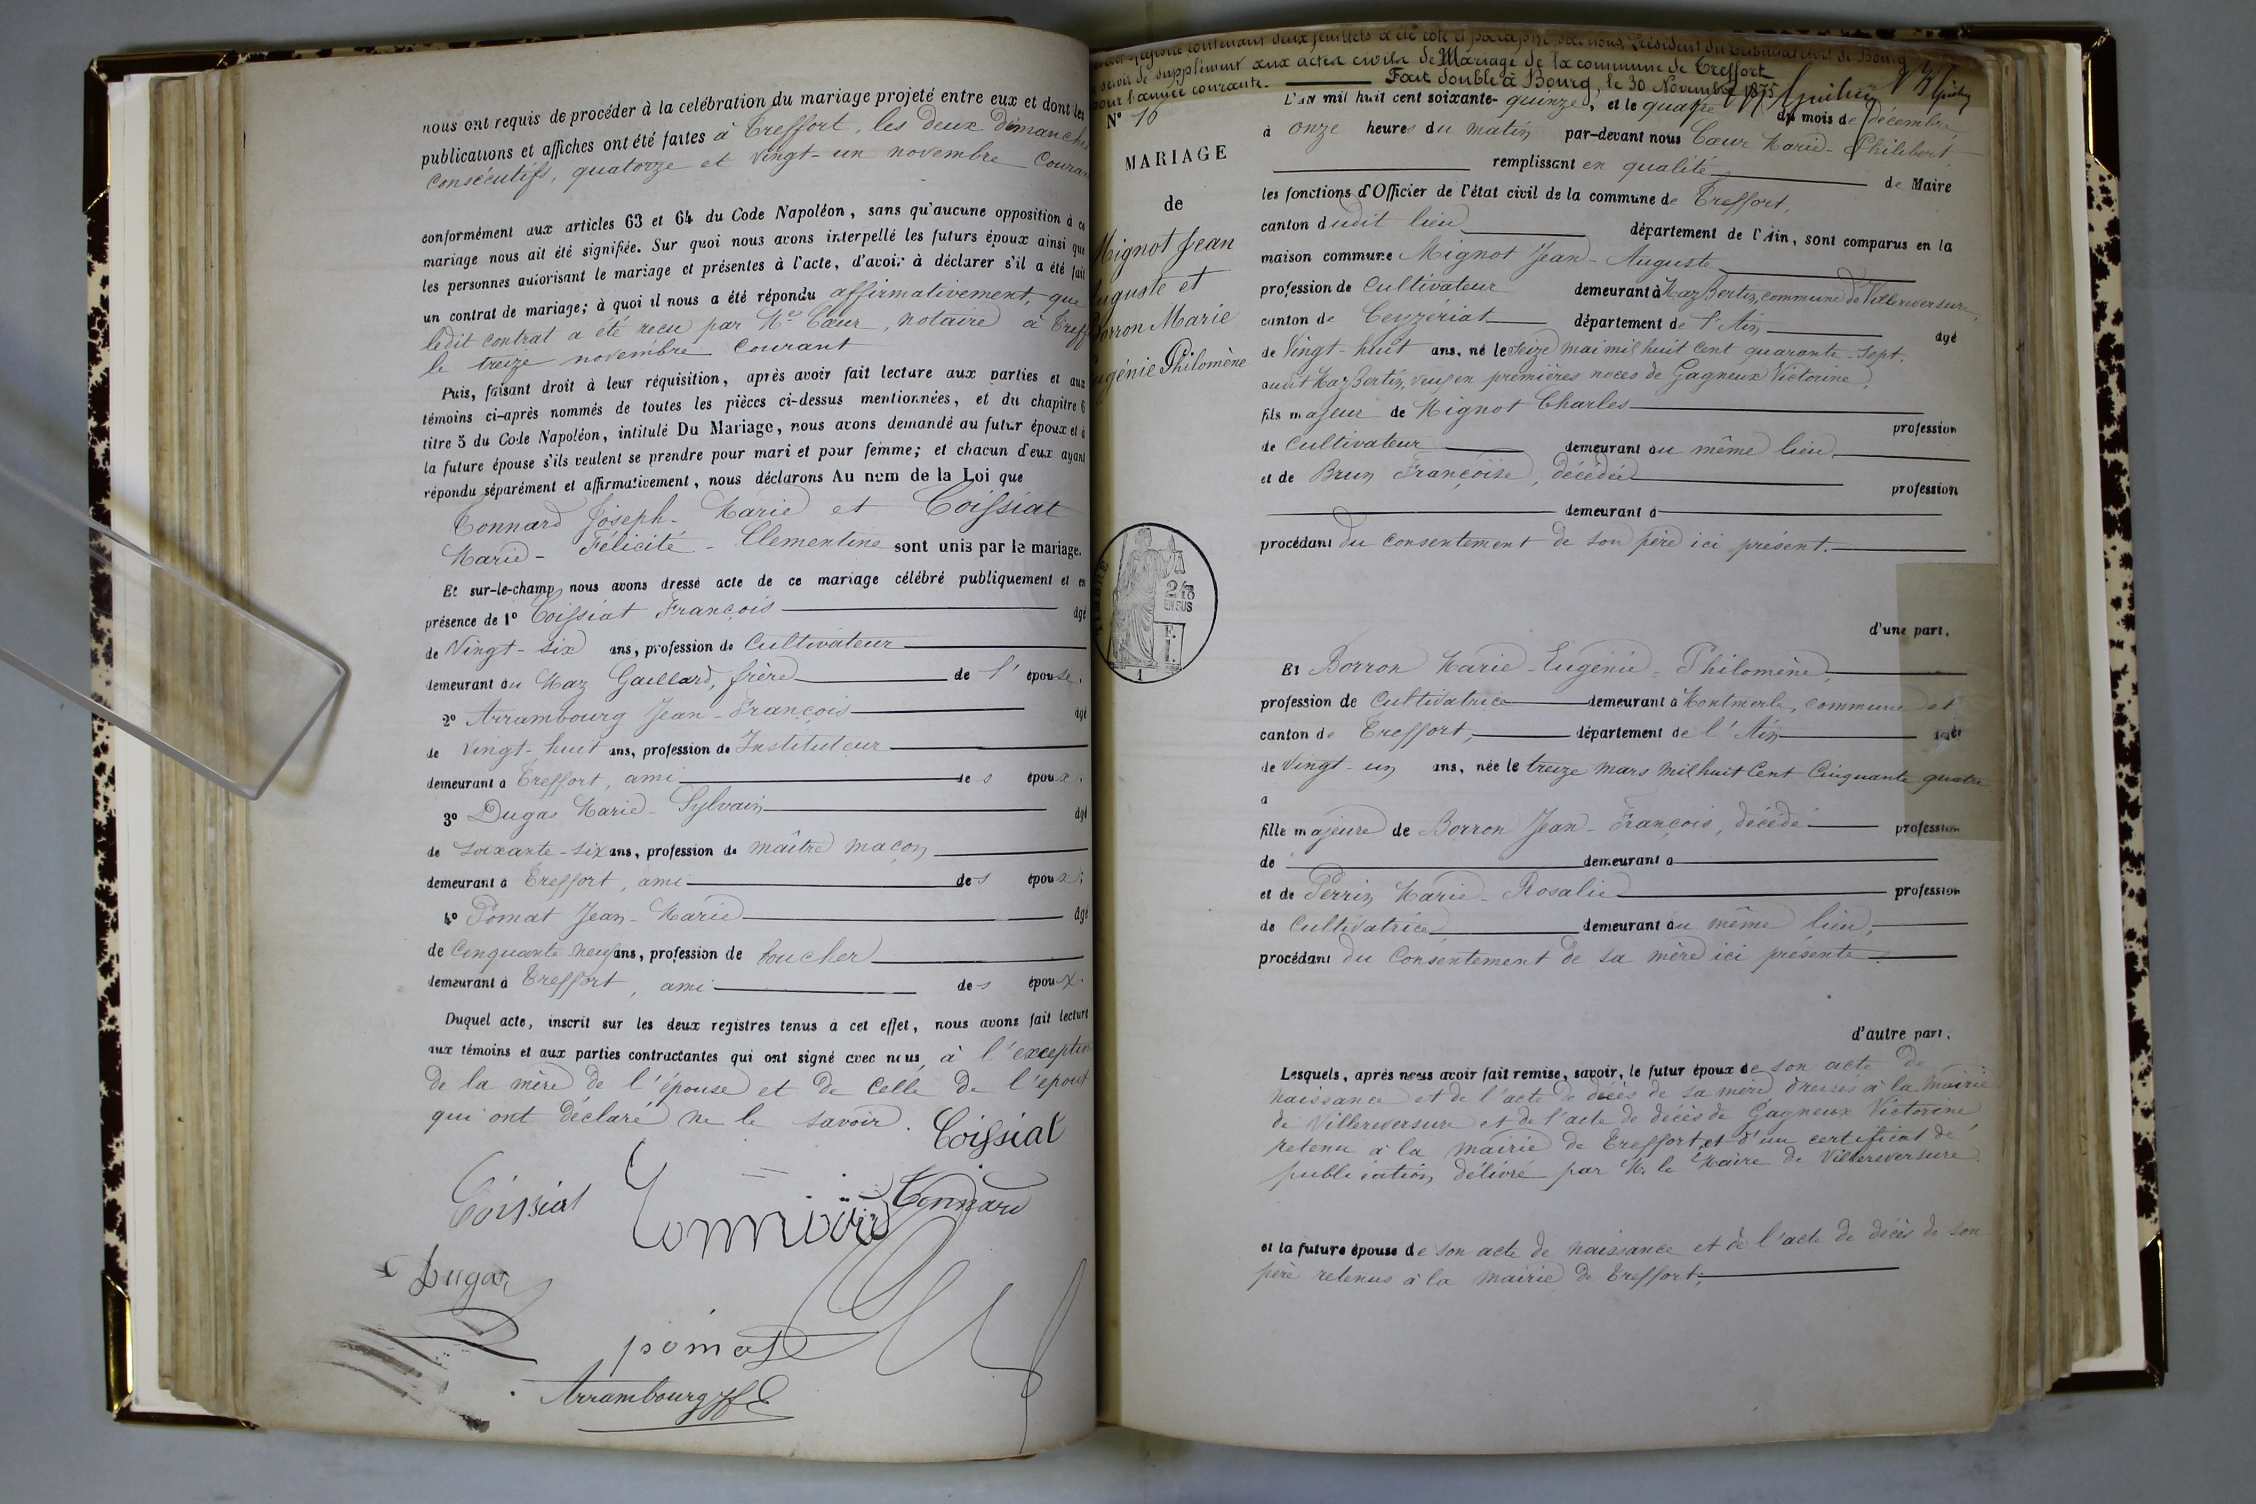 nous ont requis de procéder à la celébration du mariage projeté entre eux et dont les
publications et affiches ont été faites à Treffort, les deux dimanches
consécutifs, quatorze et vingt-un novembre couran
conformément aux articles 63 et 64 du Code Napoléon, sans qu'aucune opposition à ce
mariage nous ait été signifiée. Sur quoi nous avons interpellé les futurs époux ainsi que
les personnes autorisant le mariage et présentes à l'acte, d'avoir à déclarer s'il a été fait
un contrat de mariage; à quoi il nous a été répondu affirmativement, que
ledit contrat a été reçu par Me Cœur, notaire à Treff
le treize novembre courant
Puis, faisant droit à leur réquisition, après avoir fait lecture aux parties et aux
témoins ci-après nommés de toutes les pièces ci-dessus mentionnées, et du chapitre 6
titre 5 du Code Napoléon, intitulé Du Mariage, nous avons demandé au futur époux et à
la future épouse s'ils veulent se prendre pour mari et pour femme; et chacun d'eux ayant
répondu séparément et affirmativement, nous déclarons Au nom de la Loi que
Tonnard Joseph-Marie et Coissiat
Marie-Félicité-Clementine sont unis par le mariage.
Et sur-le-champ nous avons dressé acte de ce mariage célébré publiquement et en
présence de 1º Coissiat François âgé
de Vingt-six ans, profession de Cultivateur
demeurant au Maz Gaillard, frère de l'épouse.
2º Arrambourg Jean-François âgé
de vingt-huit ans, profession de Instituteur
demeurant à Treffort, ami des époux.
3º Dugas Marie-Sylvain âgé
de soixante-six ans, profession de maître maçon
demeurant à Treffort, ami des époux;
4º Pomat Jean-Marie âgé
de Cinquante neuf ans, profession de boucher
demeurant à Treffort, ami des époux.
Duquel acte, inscrit sur les deux registres tenus à cet effet, nous avons fait lecture
aux témoins et aux parties contractantes qui ont signé avec nous, à l'exception
de la mère de l'épouse et de celle de l'époux
qui ont déclaré ne le savoir.
Coissiat
Coissiat
Tonnard
Dugas
pomat
Arrambourg JF
registre contenant deux feuillets a été coté et paraphé par nous Président du Tribunal civil de Bourg
servir de supplément aux actes civils de Mariage de la commune de Treffort
pour l'année courante. Fait double à Bourg, le 30 Novembre 1875
Nº 16
MARIAGE
de
Mignot Jean
Auguste et
Borron Marie
Eugénie Philomène
24/10
EN SUS
L'an mil huit cent soixante-quinze, et le quatre du mois de décembre
à onze heures du matin par-devant nous Cœur Marie-Philibert
remplissant en qualité de Maire
les fonctions d'Officier de l'état civil de la commune de Treffort,
canton dudit lieu département de l'Ain, sont comparus en la
maison commune Mignot Jean-Auguste
profession de Cultivateur demeurant à Maz Bertin, commune de Villereversure,
canton de Ceyzériat département de l'Ain âgé
de Vingt-huit ans, né le seize mai mil huit cent quarante-sept
audit Maz Bertin, veuf en premières noces de Gagneux Victorine,
fils majeur de Mignot Charles profession
de Cultivateur demeurant au même lieu
et de Brun Françoise, décédée profession
demeurant à
procédant du consentement de son père ici présent.
d'une part.
Et Borron Marie-Eugénie-Philomène,
profession de Cultivatrice demeurant à Montmerle, commune et
canton de Treffort, département de l'Ain âgée
de Vingt-un ans, née le treize mars mil huit Cent Cinquante quatre
à
fille majeure de Borron Jean-François, décédé profession
de demeurant à
et de Perrin Marie-Rosalie profession
de Cultivatrice demeurant au même lieu,
procédant du Consentement de sa mère ici présente.
d'autre part.
Lesquels, après nous avoir fait remise, savoir, le futur époux de son acte de
naissance et de l'acte de décès de sa mère, dressés à la mairie
de Villereversure et de l'acte de décès de Gagneux Victorine
retenu à la mairie de Treffort, et d'un certificat de
publication délivré par M. le Maire de Villereversure.
et la future épouse de son acte de naissance et de l'acte de décès de son
père retenus à la mairie de Treffort,